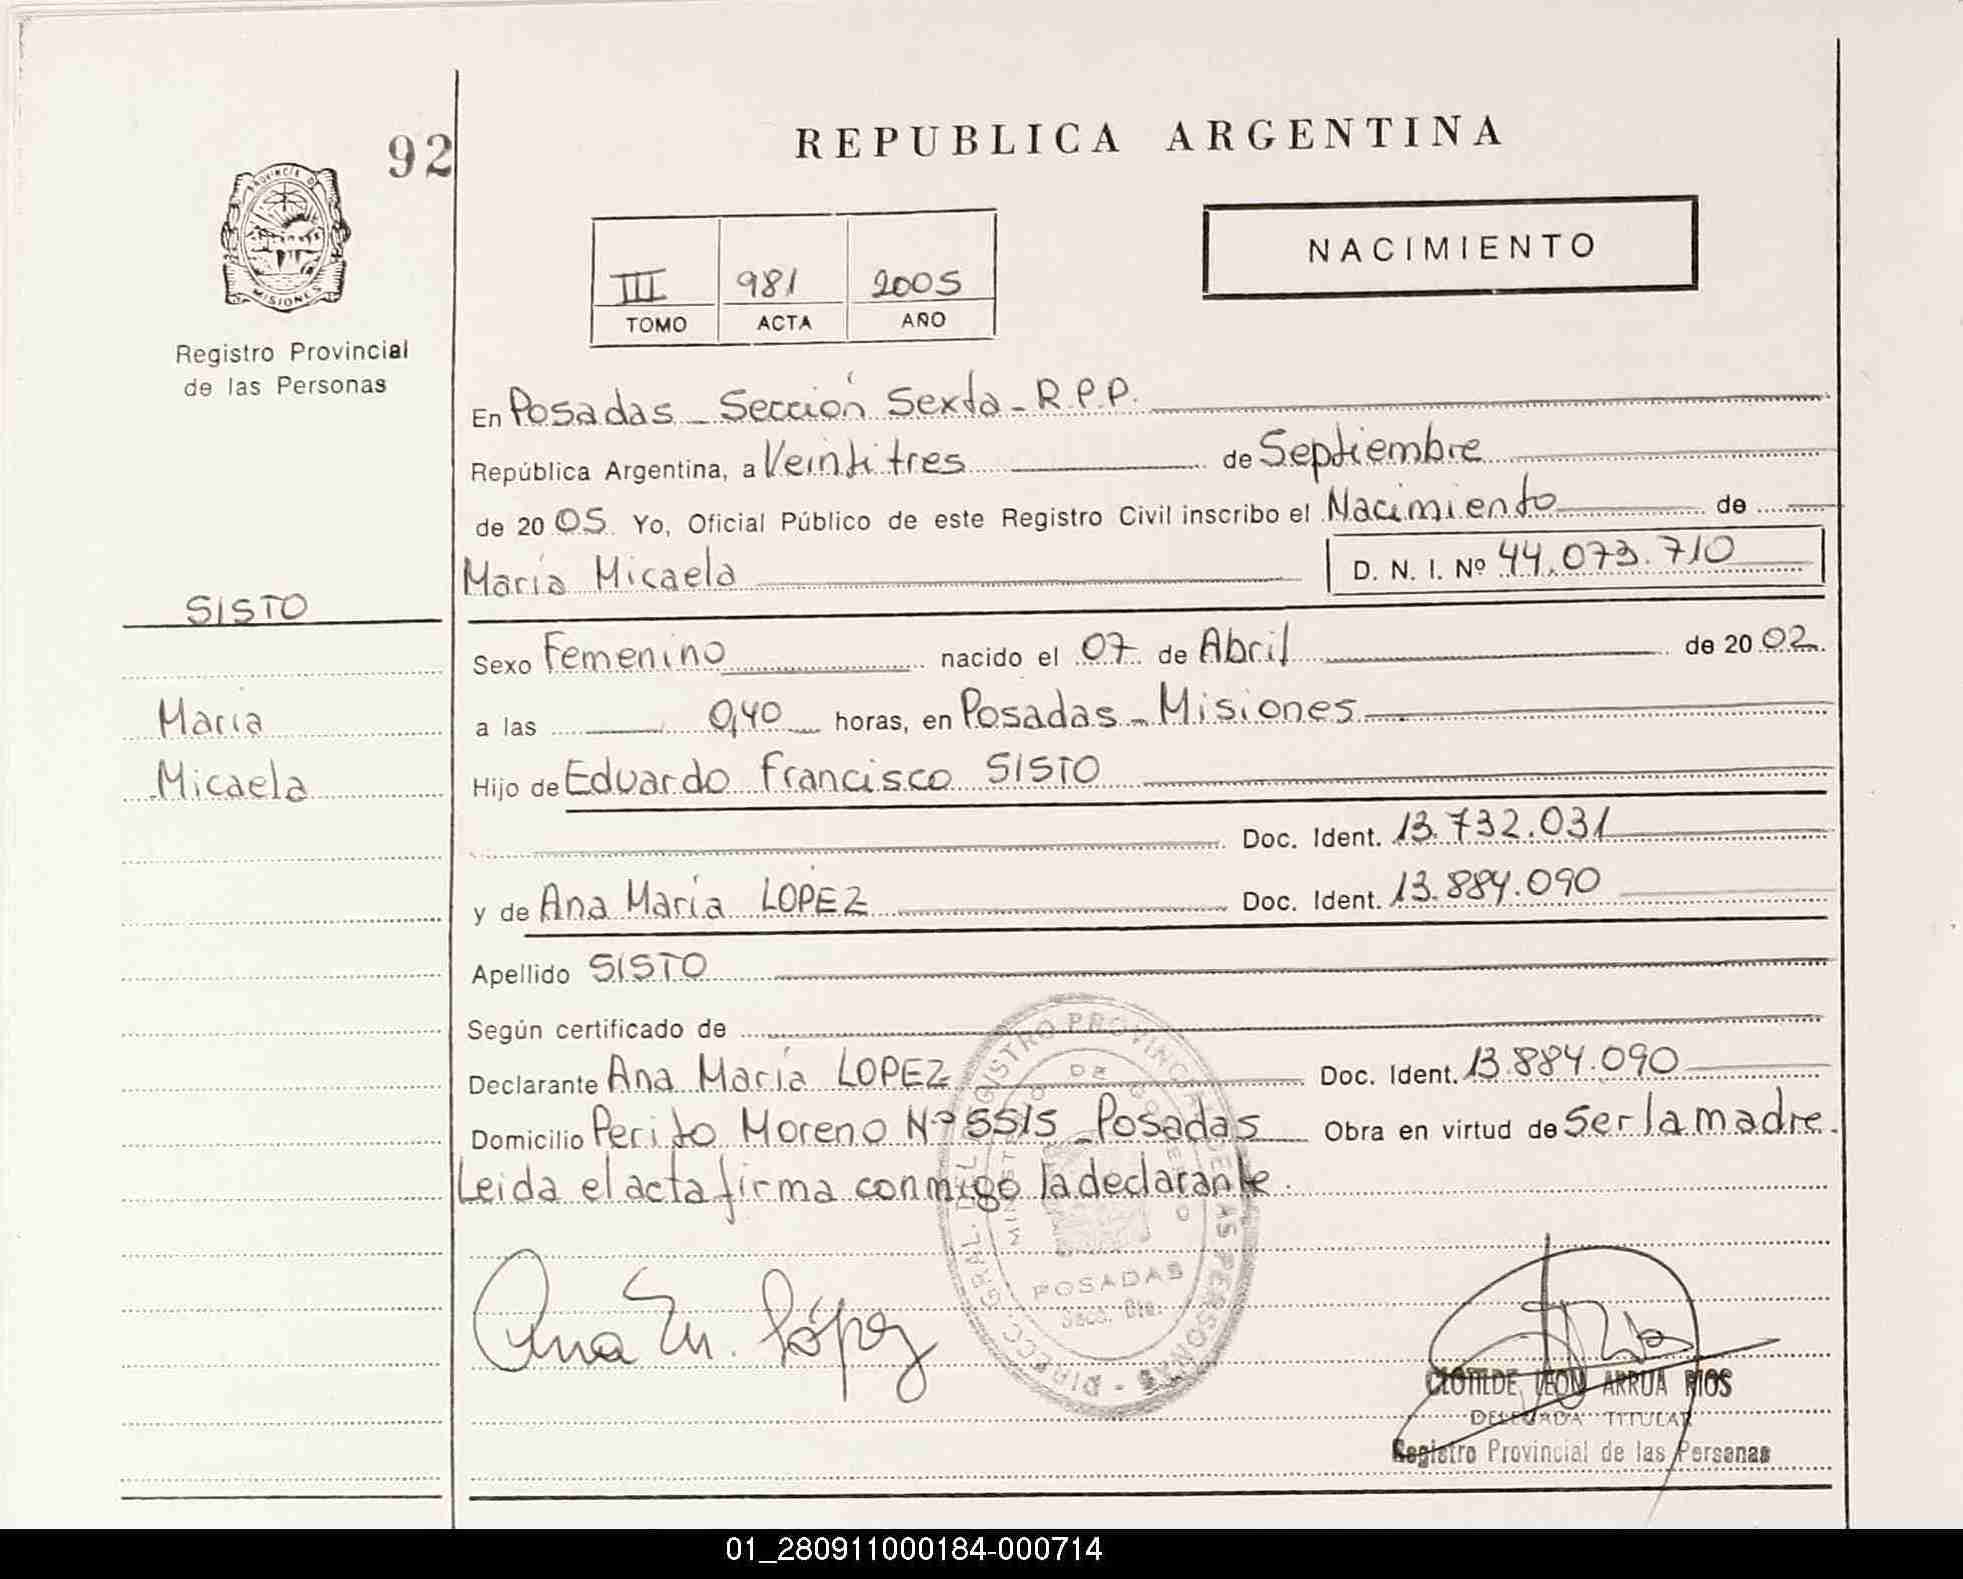 92
REPUBLICA ARGENTINA
PROVINCIA DE
MISIONES
Registro Provincial
de las Personas
NACIMIENTO
III 981 2005
TOMO ACTA AÑO
En Posadas - Sección Sexta - R.P.P.
República Argentina, a Veintitres de Septiembre
de 20 05. Yo, Oficial Público de este Registro Civil inscribo el Nacimiento de
María Micaela D. N. I. Nº 44.073.710
SISTO
Sexo Femenino nacido el 07 de Abril de 20 02.
María
a las 0,40 horas, en Posadas - Misiones
Micaela
Hijo de Eduardo Francisco SISTO
Doc. Ident. 13.732.031
y de Ana María LOPEZ Doc. Ident. 13.884.090
Apellido SISTO
Según certificado de
Declarante Ana María LOPEZ Doc. Ident. 13.884.090
Domicilio Perito Moreno Nº 5515 - Posadas Obra en virtud de ser la madre.
Leida el acta firma conmigo la declarante.
DIRECC. GRAL. DEL REGISTRO PROVINCIAL DE LAS PERSONAS
MINISTERIO DE GOBIERNO
POSADAS
Secc. 6ta.
Ana M. López
CLOTILDE LEON ARRUA RIOS
DELEGADA TITULAR
Registro Provincial de las Personas
01_280911000184-000714